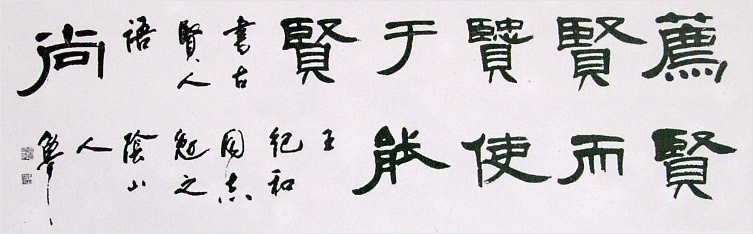 薦賢賢于賢尚
賢而使能
書古
賢人
語
王
紀和
同志
勉之
陰山
人